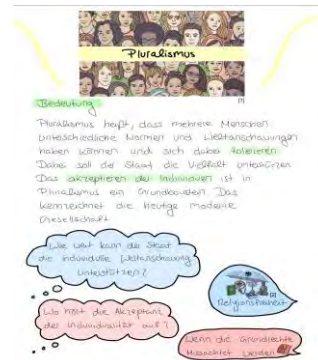 Pluralismus
[1]
Bedeutung
Pluralismus heißt, dass mehrere Menschen
unterschiedliche Normen und Weltanschauungen
haben können und sich dabei tolerieren
Dabei soll der Staat die Vielfalt unterstützen
Das akzeptieren der Individuen ist in
Pluralismus ein Grundbaustein. Das
kennzeichnet die heutige moderne
Gesellschaft
Wie weit kann der Staat
die individuelle Weltanschauung
unterstützen?
[2]
Religionsfreiheit
Wo hört die Akzeptanz
der Individualität auf?
Wenn die Grundrechte
Missachtet werden